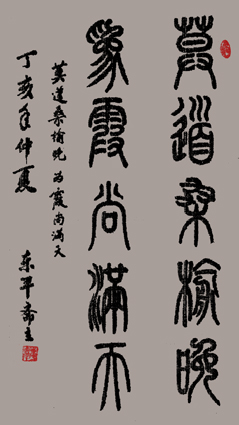 莫道桑榆晚
为霞尚满天
莫道桑榆晚 为霞尚满天
丁亥年仲夏
东平斋主